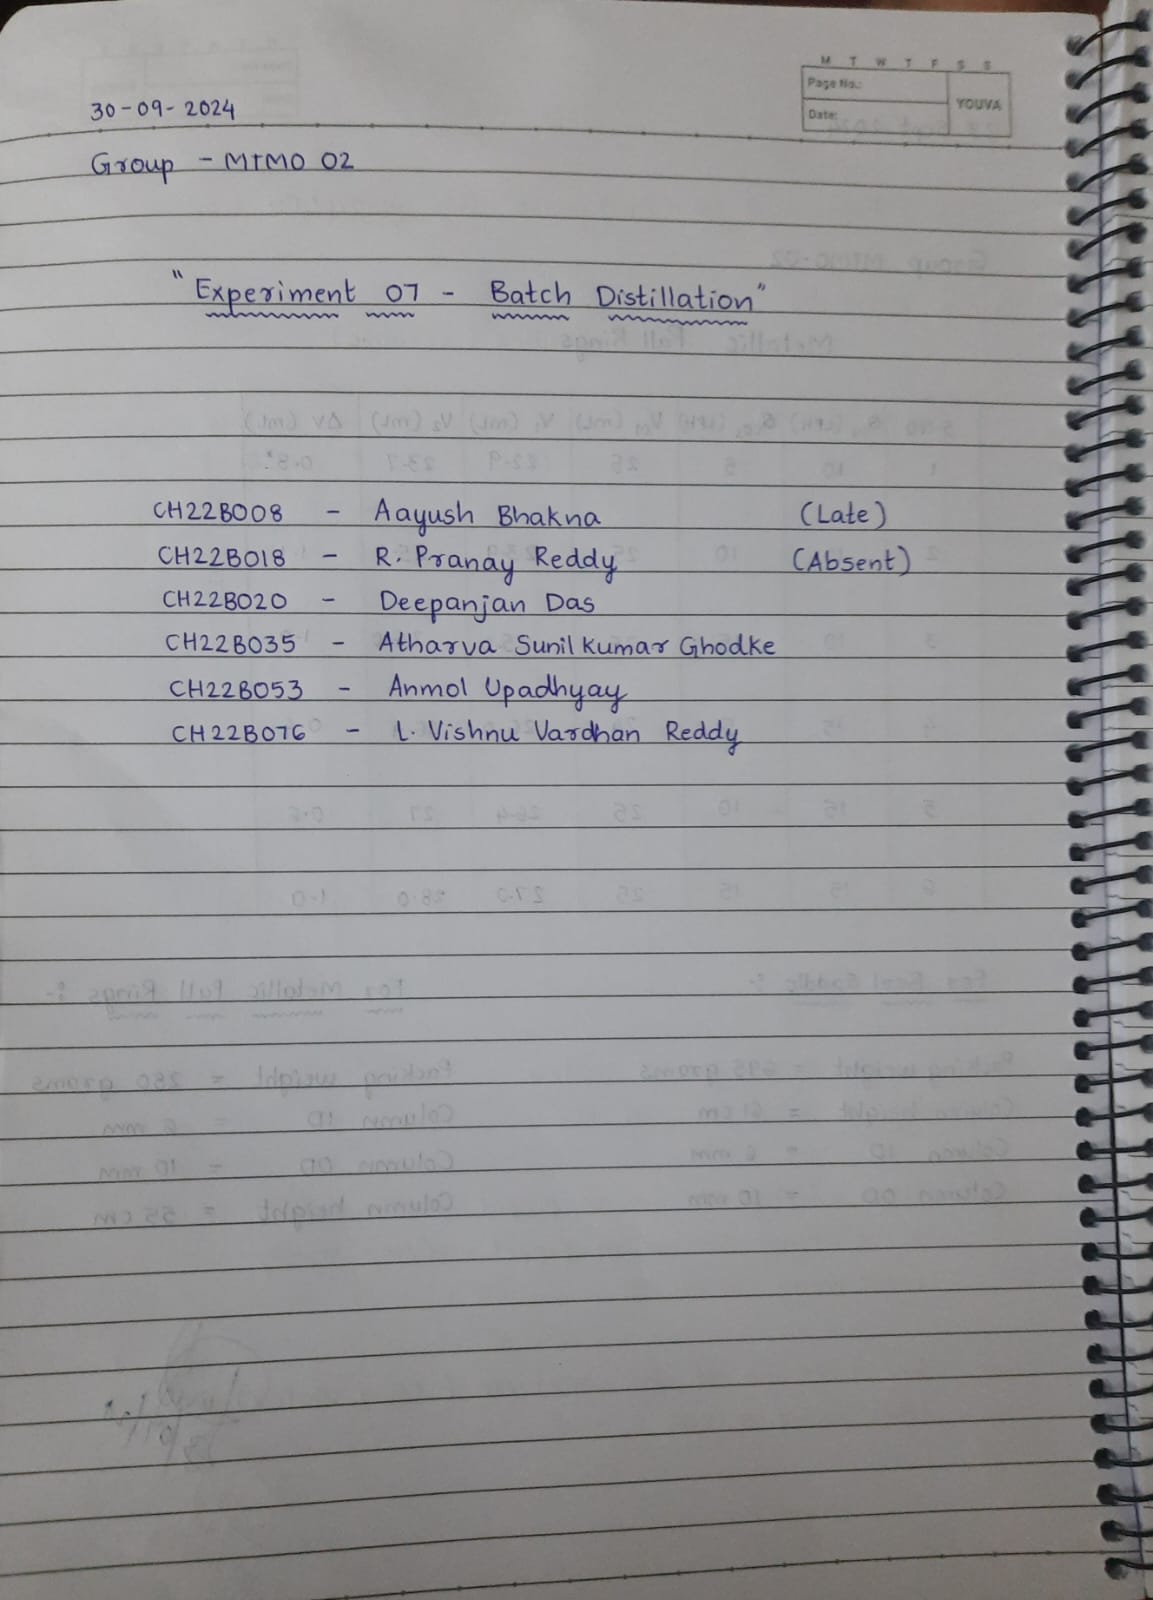 M T W T F S S
Page No.:
Date:
YOUVA
30-09-2024
Group - MTMO 02
"Experiment 07 - Batch Distillation"
CH22B008 - Aayush Bhakna (Late)
CH22B018 - R. Pranay Reddy (Absent)
CH22B020 - Deepanjan Das
CH22B035 - Atharva Sunil Kumar Ghodke
CH22B053 - Anmol Upadhyay
CH22B076 - L. Vishnu Vardhan Reddy